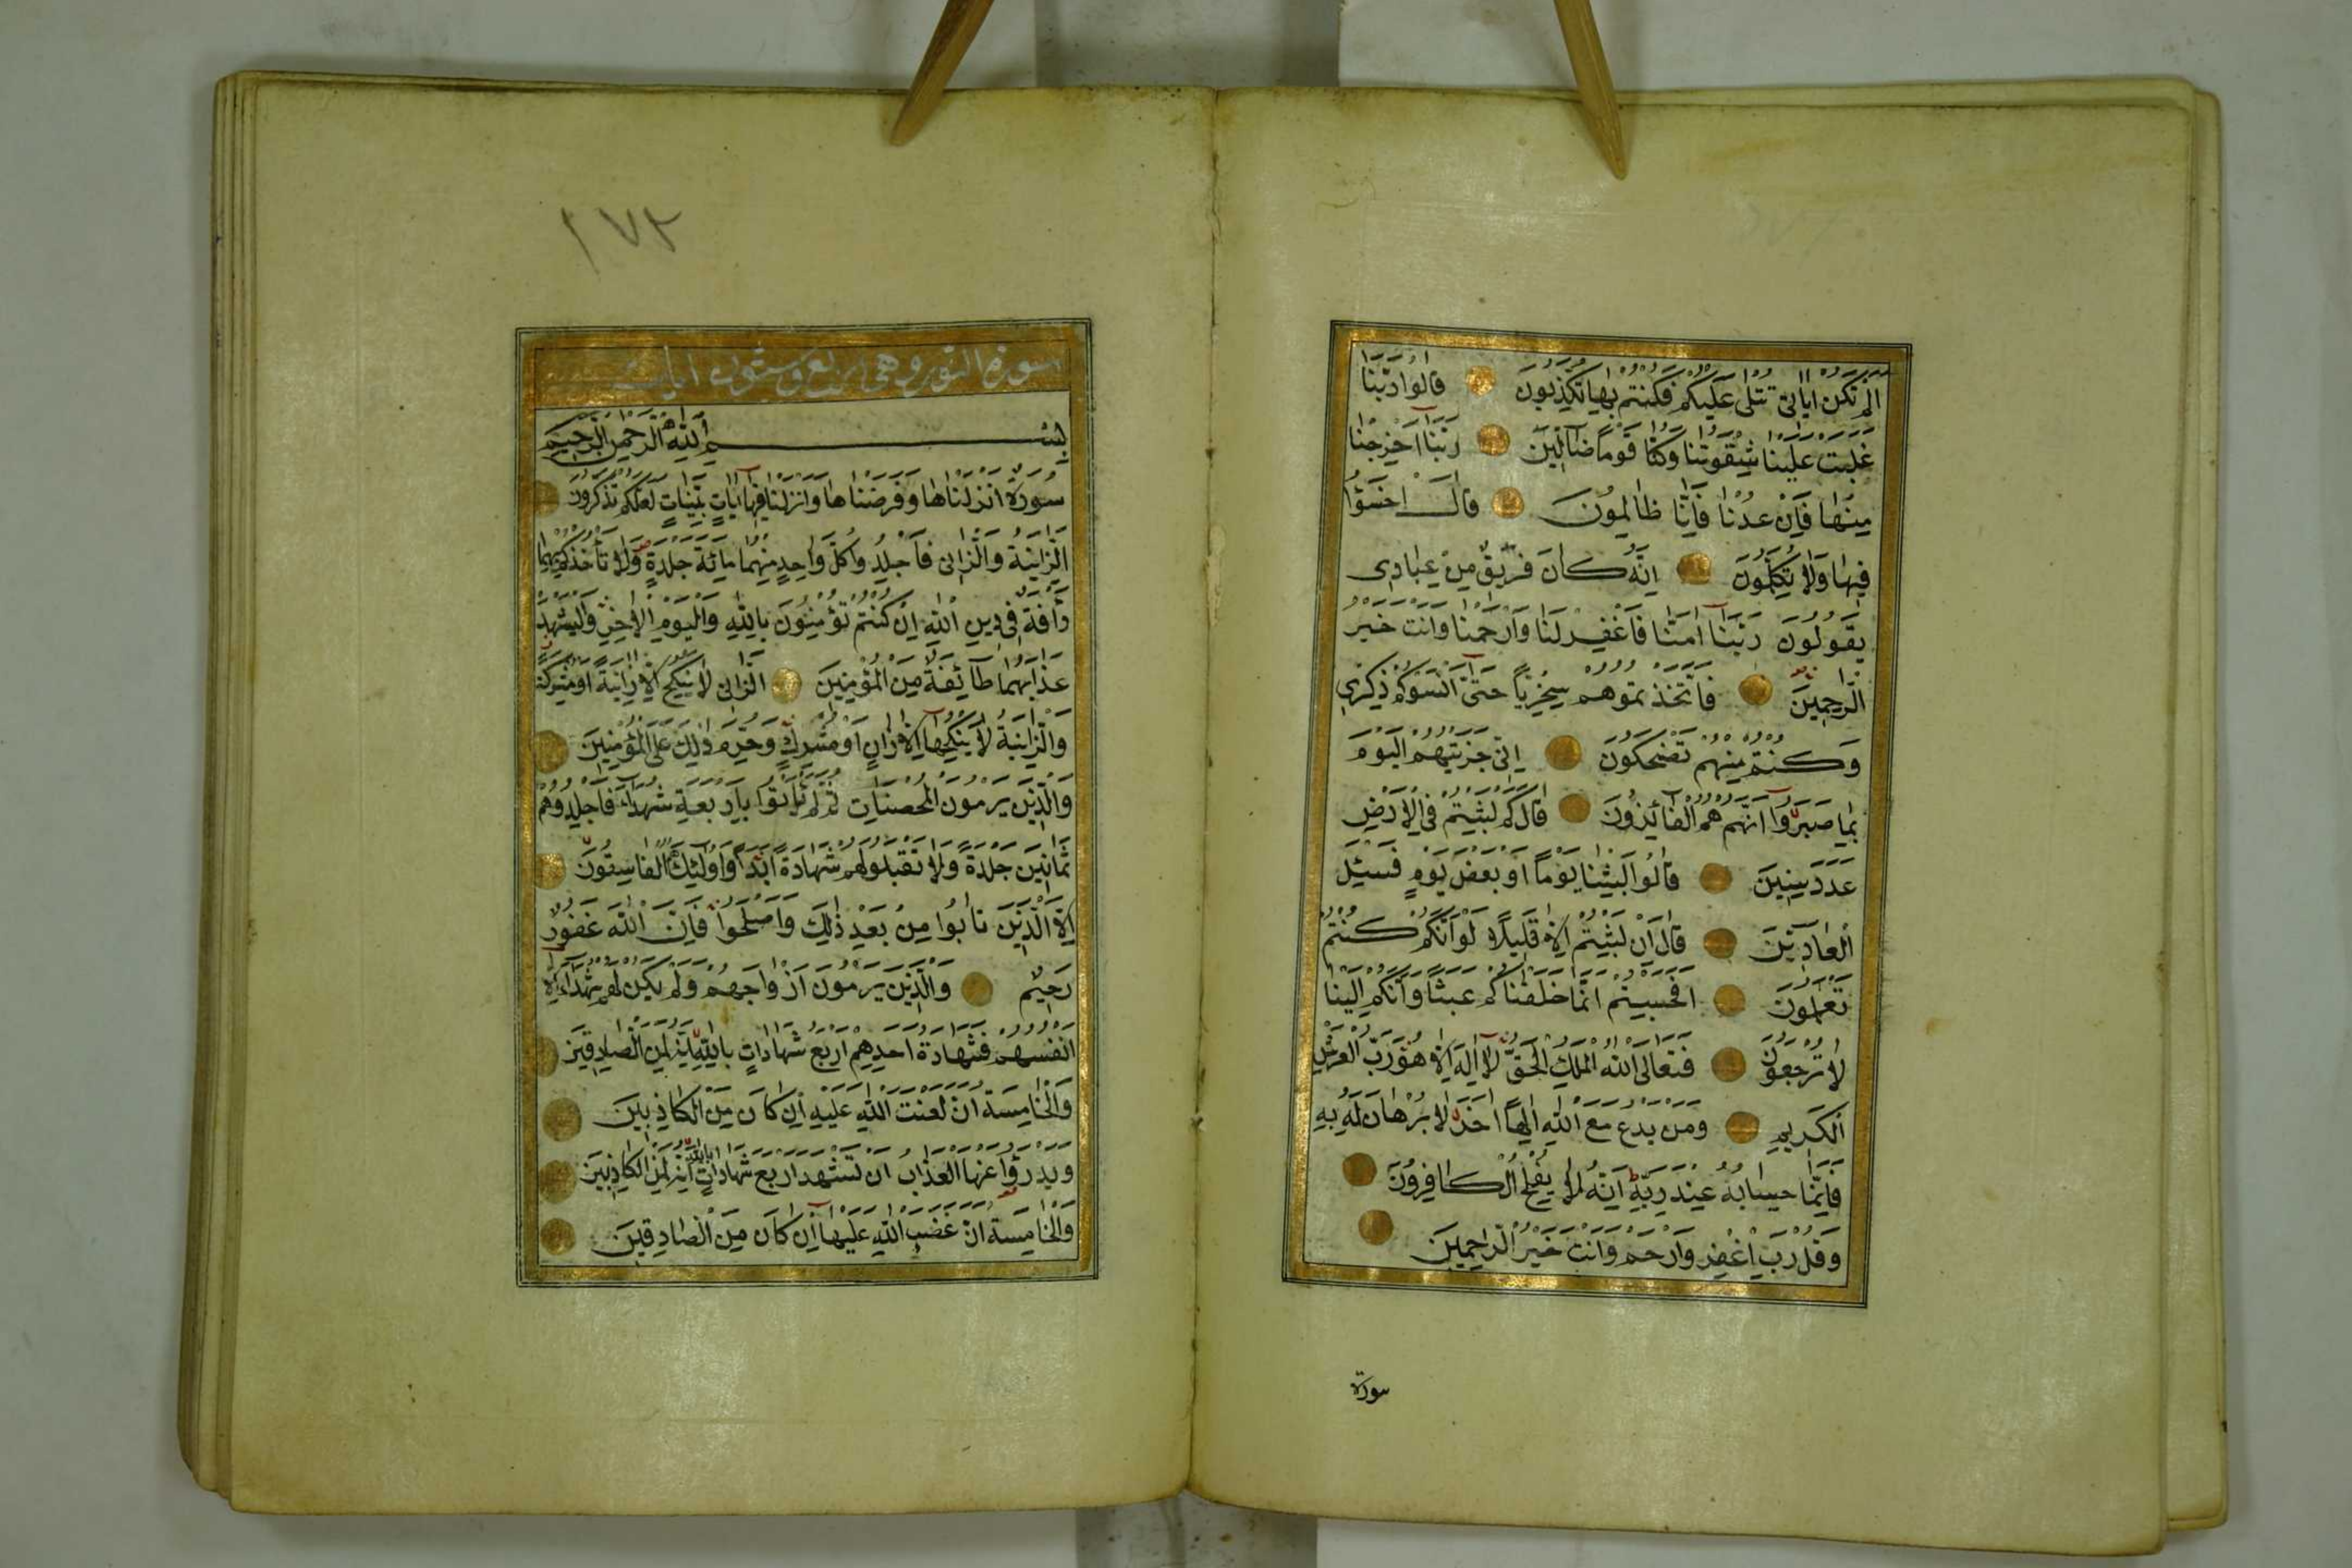 الم تكن اياتى تتلى عليكم فكنتم بها تكذبون قالوا ربنا
غلبت علينا شقوتنا وكنا قوما ضالين ربنا اخرجنا
منها فان عدنا فانا ظالمون قال اخسؤا
فيها ولا تكلمون انه كان فريق من عبادى
يقولون ربنا امنا فاغفر لنا وارحمنا وانت خير
الراحمين فاتخذتموهم سخريا حتى انسوكم ذكري
وكنتم منهم تضحكون انى جزيتهم اليوم
بما صبروا انهم هم الفائزون قال كم لبثتم فى الارض
عدد سنين قالوا لبثنا يوما او بعض يوم فسئل
العادين قال ان لبثتم الا قليلا لو انكم كنتم
تعلمون افحسبتم انما خلقناكم عبثا وانكم الينا
لا ترجعون فتعالى الله الملك الحق لا اله الا هو رب العرش
الكريم ومن يدع مع الله الها اخر لا برهان له به
فانما حسابه عند ربه انه لا يفلح الكافرون
وقل رب اغفر وارحم وانت خير الراحمين
سورة
١٧٢
سورة النور وهى اربع وستون ايات
بسم الله الرحمن الرحيم
سورة انزلناها وفرضناها وانزلنا فيها ايات بينات لعلكم تذكرون
الزانية والزانى فاجلدوا كل واحد منهما مائة جلدة ولا تأخذكم بهما
رأفة فى دين الله ان كنتم تؤمنون بالله واليوم الاخر وليشهد
عذابهما طائفة من المؤمنين الزانى لا ينكح الا زانية او مشركة
والزانية لا ينكحها الا زان او مشرك وحرم ذلك على المؤمنين
والذين يرمون المحصنات ثم لم يأتوا باربعة شهداء فاجلدوهم
ثمانين جلدة ولا تقبلوا لهم شهادة ابدا واولئك هم الفاسقون
الا الذين تابوا من بعد ذلك واصلحوا فان الله غفور
رحيم والذين يرمون ازواجهم ولم يكن لهم شهداء الا
انفسهم فشهادة احدهم اربع شهادات بالله انه لمن الصادقين
والخامسة ان لعنت الله عليه ان كان من الكاذبين
ويدرؤا عنها العذاب ان تشهد اربع شهادات بالله انه لمن الكاذبين
والخامسة ان غضب الله عليها ان كان من الصادقين